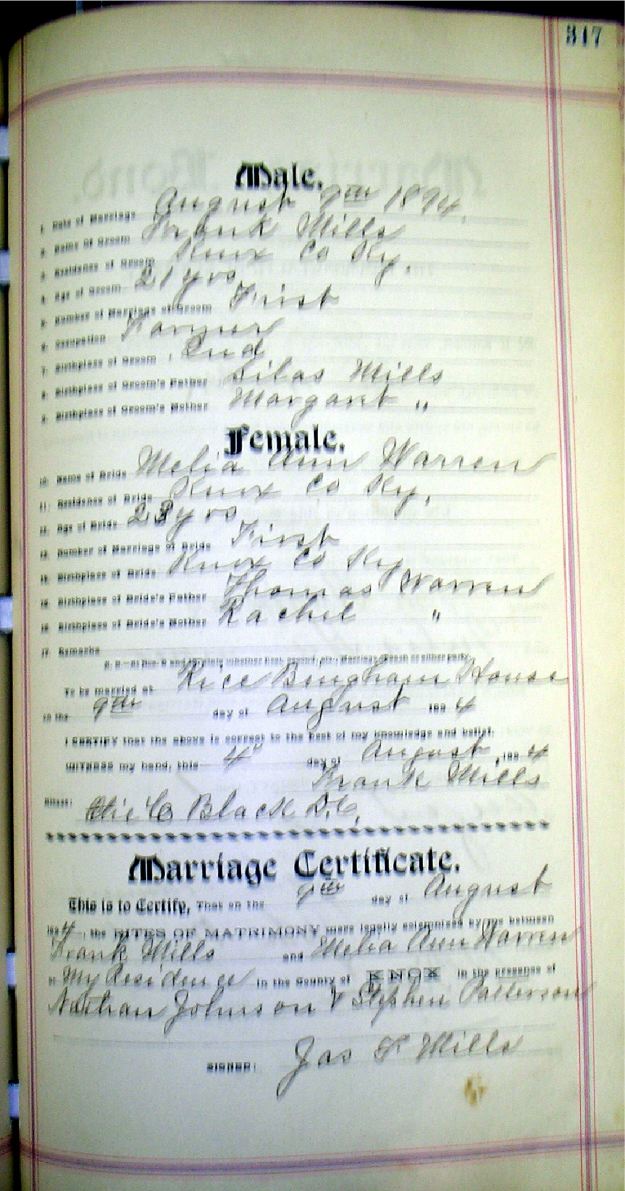 317
Male.
1. Date of Marriage August 9th 1894.
2. Name Of Groom Frank Mills
3. Residence of Groom Knox Co Ky.
4. Age of Groom 21 yrs
5. Number of Marriage of Groom First
6. Occupation Farmer
7. Birthplace of Groom, Ind
8. Birthplace of Groom's Father Silas Mills
9. Birthplace of Groom's Mother Margaret "
Female.
10. Name of Bride Melia Ann Warren
11. Residence of Bride Knox Co Ky.
12. Age of Bride 23 yrs
13. Number of Marriage of Bride First
Birthplace of Bride Knox Co Ky
15. Birthplace of Bride's Father Thomas Warren
16. Birthplace of Bride's Mother Rachel "
17. Remarks
To be married at Rice Bingham House
on the 9th day of August 1894
I CERTIFY that the above is correct to the best of my knowledge and belief.
WITNESS my hand, this 4" day of August, 1894
Frank Mills
Attest: Black D.C.
Marriage Certificate.
This is to Certify, That on the 9th day of August
1894, the RITES OF MATRIMONY were legally solemnized by me between
Frank Mills and Melia Ann Warren
at My Residence in the County of KNOX in the presence of
Nathan Johnson & Stephen Patterson
SIGNED: Jas F Mills